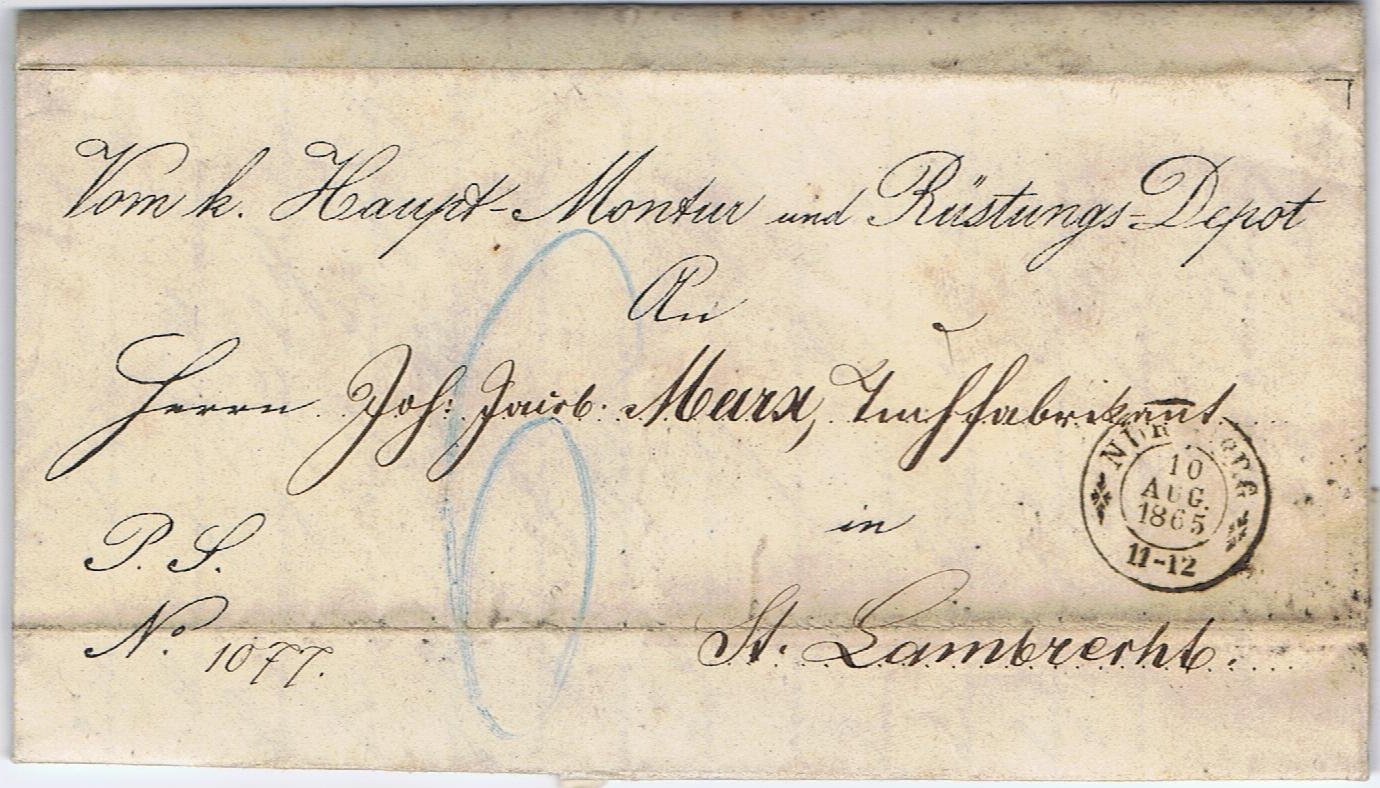 Vom k. Haupt-Montur und Rüstungs-Depot
An
Herrn Joh: Jacob. Marx, Tuchfabrikant
in
St. Lambrecht.
P. S.
No. 1077.
6
10
AUG.
1865
11-12